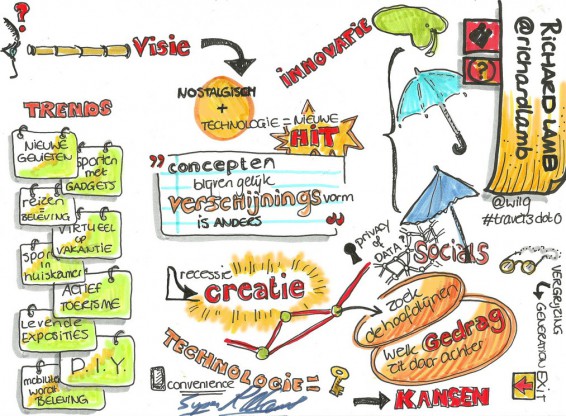 ?
Visie
INNOVATIE
NOSTALGISCH
+
TECHNOLOGIE = NIEUWE
HIT
TRENDS
NIEUWE
GENIETEN
SPORTEN
MET
GADGETS
reizen
=BELEVING
VIRTUEEL
OP
VAKANTIE
IN
huiskamer
ACTIEF
TOERISME
LEVENDE
EXPOSITIES
D.I.Y.
mobiliteit
wordt
BELEVING
" concepten
blijven gelijk
verschijningsvorm
IS ANDERS "
RICHARD LAMB
@richardlamb
?
@wilg
privacy of
DATA?
SOCIALS
recessie
creatie
zoek
de hoofdlijnen
welk Gedrag
zit daar achter
TECHNOLOGIE =
convenience
KANSEN
VERGRIJZING
GENERATION EXIT